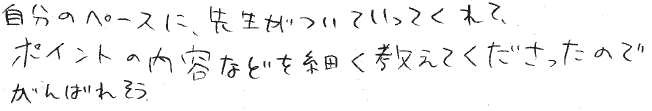 自分のペースに、先生がついていってくれて、
ポイントの内容などを細く教えてくださったので
がんばれそう